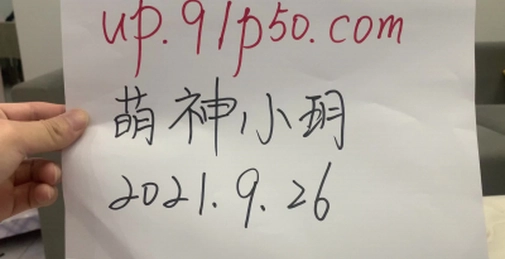 up.91p50.com
萌神小玥
2021.9.26